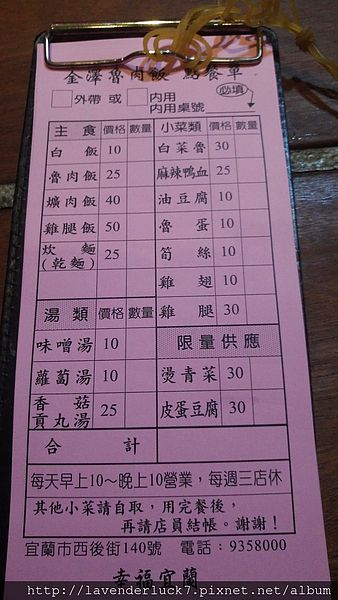 金澤魯肉飯 點餐單
外帶 或 內用 必填
內用桌號
主食 價格 數量 小菜類 價格 數量
白飯 10 白菜魯 30
魯肉飯 25 麻辣鴨血 25
爌肉飯 40 油豆腐 10
雞腿飯 50 魯蛋 10
炊麵(乾麵) 25 筍絲 10
雞翅 10
湯類 價格 數量 雞腿 30
味噌湯 10 限量供應
蘿蔔湯 10 燙青菜 30
香菇貢丸湯 25 皮蛋豆腐 30
合計
每天早上10～晚上10營業，每週三店休
其他小菜請自取，用完餐後，
再請店員結帳。謝謝！
宜蘭市西後街140號 電話：9358000
幸福宜蘭
http://lavenderluck7.pixnet.net/album